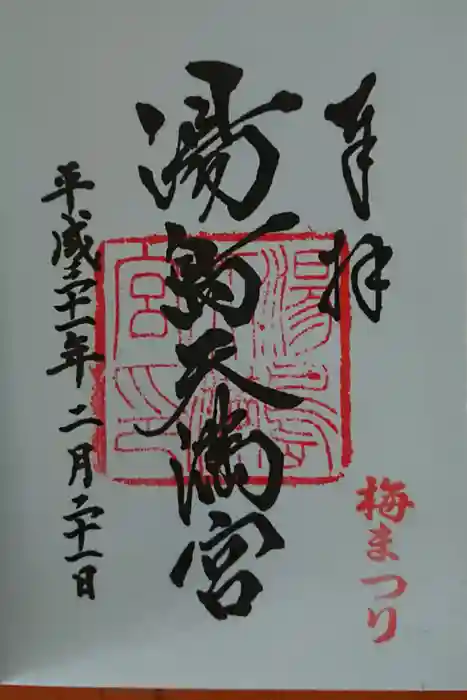 奉拝
湯島天満宮
平成二十一年二月二十一日
梅まつり